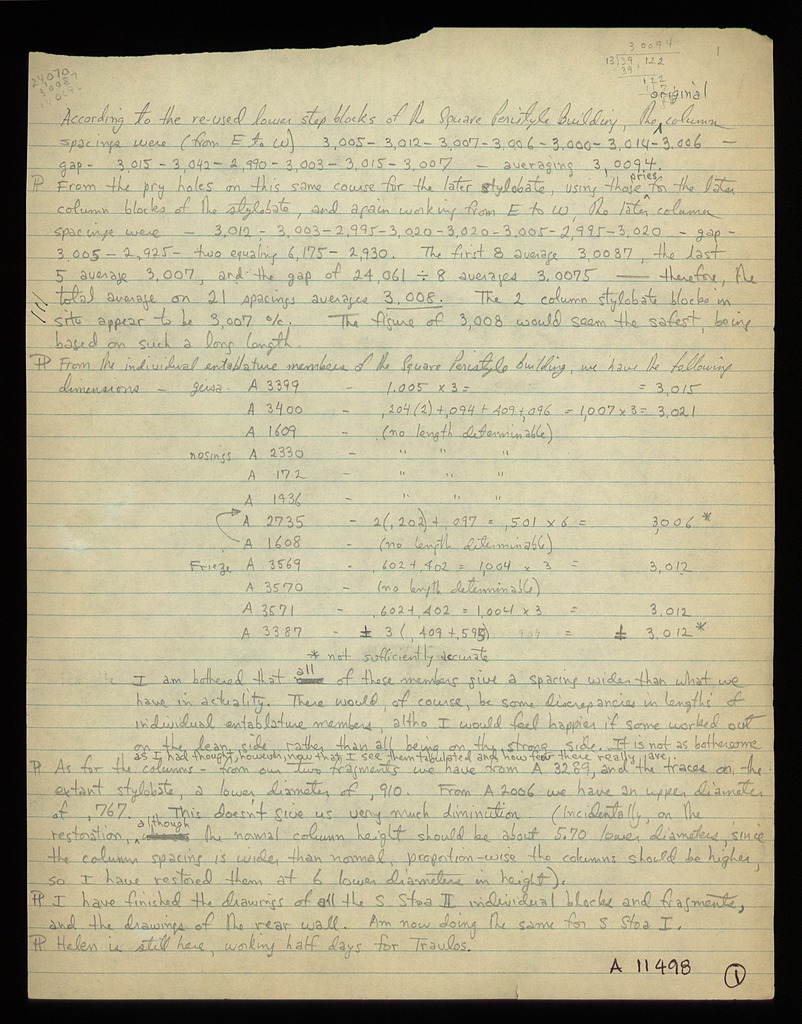 3.0094
13)39,122
39
122
1
original
According to the re-used lower step blocks of the Square Peristyle Building, the column
spacings were (from E to W) 3,005 - 3,012 - 3,007 - 3,006 - 3,000 - 3,014 - 3,006 -
gap - 3,015 - 3,042 - 2,990 - 3,003 - 3,015 - 3,007 - averaging 3,0094.
P From the pry holes on this same course for the later stylobate, using those pries for the later
column blocks of the stylobate, and again working from E to W, the later column
spacings were - 3,012 - 3,003 - 2,995 - 3,020 - 3,020 - 3,005 - 2,995 - 3,020 - gap -
3,005 - 2,925 - two equaling 6,175 - 2,930. The first 8 average 3,0087, the last
5 average 3,007, and the gap of 24,061 ÷ 8 averages 3,0075 — therefore, the
total average on 21 spacings averages 3,008. The 2 column stylobate blocks in
situ appear to be 3,007 o/c. The figure of 3,008 would seem the safest, being
based on such a long length.
P From the individual entablature members of the Square Peristyle Building, we have the following
dimensions - geisa. A 3399 - 1.005 x 3 = = 3,015
A 3400 - ,204(2)+,094+,409+,096 = 1,007 x 3 = 3,021
A 1609 - (no length determinable)
nosings A 2330 - " " "
A 172 - " " "
A 1936 - " " "
A 2735 - 2(,202)+,097 = ,501 x 6 = 3,006 *
A 1608 - (no length determinable)
Frieze A 3569 - ,602+,402 = 1,004 x 3 = 3,012
A 3570 - (no length determinable)
A 3571 - ,602+,402 = 1,004 x 3 = 3,012
A 3387 - ± 3(,409+,595) = ± 3,012 *
* not sufficiently accurate
I am bothered that all of these members give a spacing wider than what we
have in actuality. There would, of course, be some discrepancies in lengths of
individual entablature members, altho I would feel happier if some worked out
on the lean side rather than all being on the strong side. It is not as bothersome
as I had thought, however, now that I see them tabulated and how few there really are.
P As for the columns - from our two fragments we have from A 3289, and the traces on the
extant stylobate, a lower diameter of ,910. From A 2006 we have an upper diameter
of ,767. This doesn't give us very much diminution. (Incidentally, on the
restoration, although the normal column height should be about 5.70 lower diameters, since
the column spacing is wider than normal, proportion-wise the columns should be higher,
so I have restored them at 6 lower diameters in height).
P I have finished the drawings of all the S Stoa II individual blocks and fragments,
and the drawings of the rear wall. Am now doing the same for S Stoa I.
P Helen is still here, working half days for Travlos.
A 11498 1